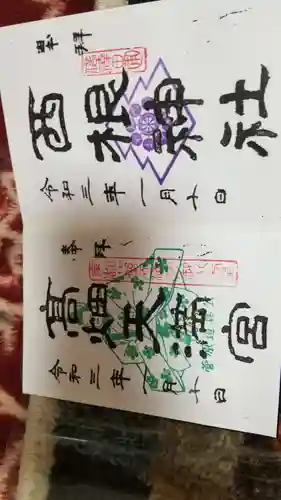 奉拝
西根神社
令和三年一月十日
奉拝
高畑天満宮
令和三年一月十日